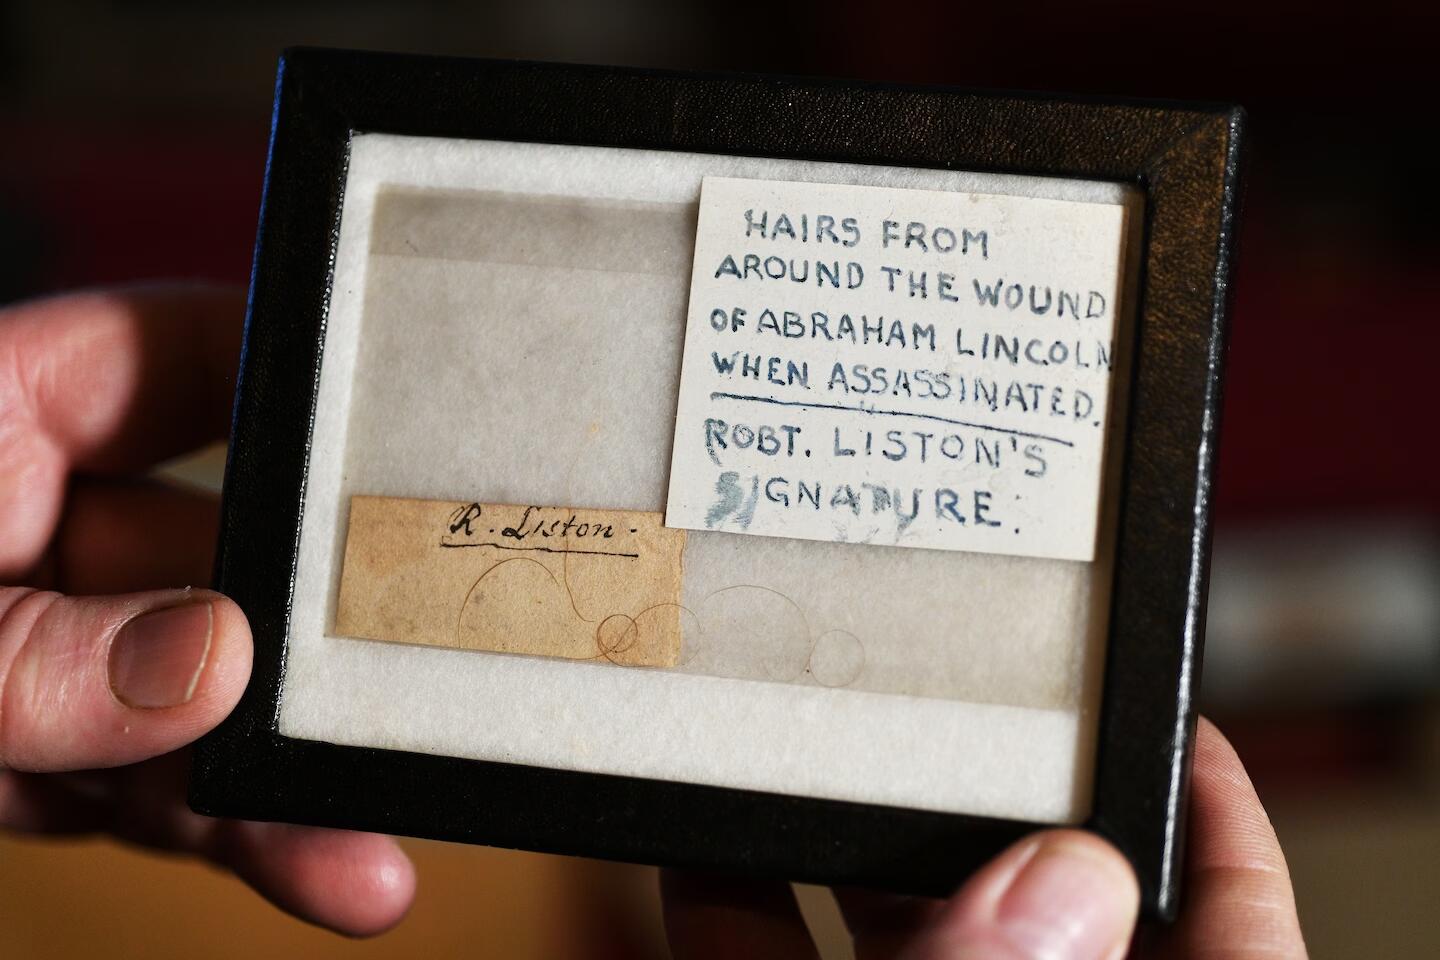 HAIRS FROM
AROUND THE WOUND
OF ABRAHAM LINCOLN
WHEN ASSASSINATED.
ROBT. LISTON'S
SIGNATURE.
R. Liston.